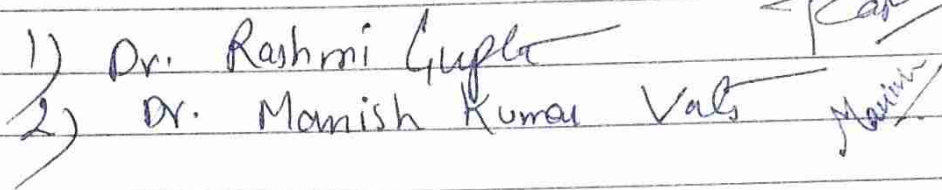 1) Dr. Rashmi Gupta
2) Dr. Manish Kumar Vats Manish